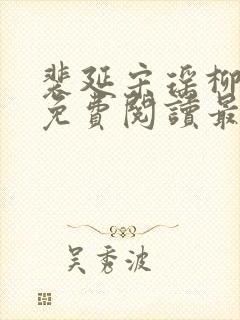 裴延宗瑶柳
免费阅读最
吴秀波